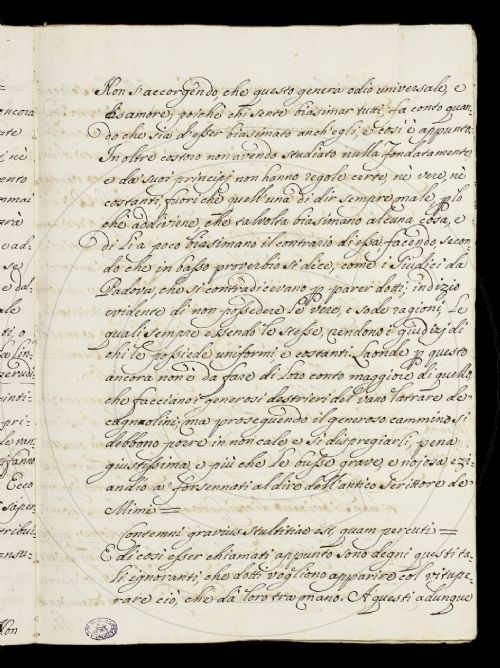 Non s'accorgendo che questo genera odio universale, e
disamore, poichè chi sente biasimar tutti, fa conto quan-
do che sia d'esser biasimato anch'egli, e così è appunto.
Inoltre costoro non avendo studiato nulla fondatamente,
e da' suoi principj non hanno regole certe, nè vere, nè
costanti, fuori che quell'una di dir sempre male, p lo
che addiviene, che talvolta biasimano alcuna cosa, e
di lì a poco biasimano il contrario di essa, facendo secon-
do che in basso proverbio si dice, come i Giudici da
Padova, che si contradicevano p parer dotti; indizio
evidente di non possedere le vere, e sode ragioni, le
quali sempre essendo le stesse, rendono i giudizj di
chi le possiede uniformi, e costanti. Laonde p questo
ancora non è da fare di loro conto maggiore di quello,
che facciano i generosi destrieri del vano latrare de'
cagnolini, ma proseguendo il generoso cammino si
debbono porre in non cale, e si dispregiarli, pena
giustissima, e più che le busse grave, e nojosa, ezi-
andio a' forsennati al dire dell'antico Scrittore de'
Mimi =
Contemni gravius stultitiae est, quam percuti =
E di così esser chiamati appunto sono degni questi ta-
li ignoranti, che dotti vogliono apparire col vitupe-
rare ciò, che dà loro tra mano. A questi adunque
ancora
ì nè
ento
nmai
arà
e ad-
se
e dal-
ale
ti, o
inti-
pri-
Ecco
saper
ribui-
nsu-
Non